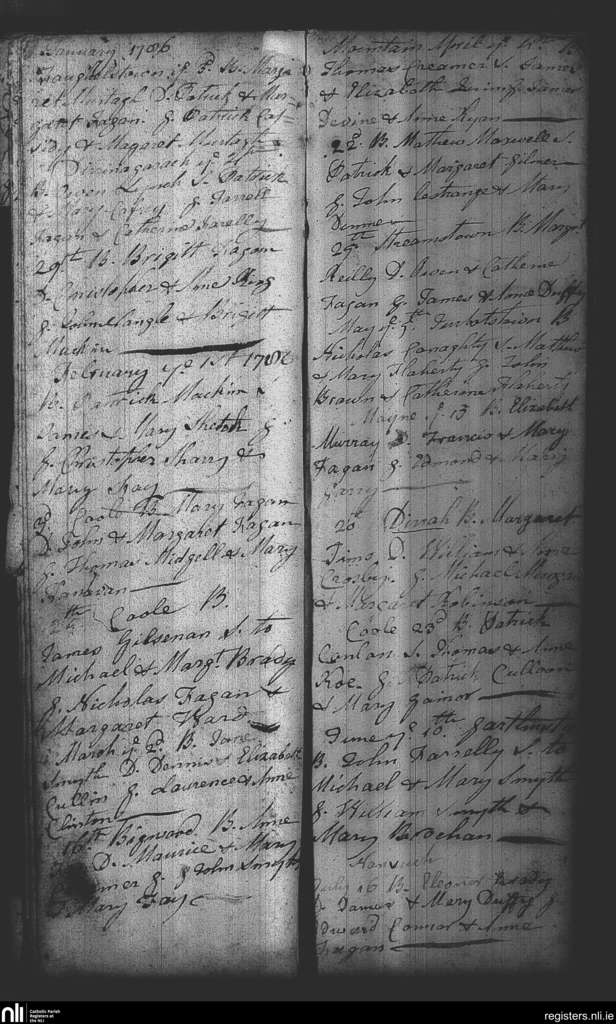 January 1786
ye 3d B. Marga
ret Murtagh D. Patrick & Mar
garet Fagan. g Patrick Cas
sidy & Magaret Murtagh
ye 4th
B. Owen Lynch S. Patrick
& Mary g Farrell
Fagan & Catherine Farelly
29th B. Brigitt Fagan
D. Christopher & Anne King
g John Langle & Brigitt
Mackin
February ye 1st 1786
B. Patrick Mackin S
James & Mary g
g. Christopher Sharry &
Mary Fay
Coole B. Mary Fagan
D John & Margaret Fagan
g Thomas Midgell & Mary
Hanavan
Coole B.
James Gilsenan S. to
Michael & Margt. Brady
g. Nicholas Fagan &
Margaret Ward
March ye 2d. B. Jane
Smyth D. Dennis & Elizabeth
Cullin g Laurence & Anne
Clinton
16th B. Anne
D. Maurice & Mary
g. John Smyth
Mary Fay
Mountain April ye
Thomas Creamer S. James
& Elizabeth Quin g. James
Devine & Anne Ryan
22. B. Mathew Maxwell S.
Patrick & Margaret Gilmer
g John Lestrange & Mary
Dunne
29th Streamstown B. Margt.
Reilly D. Owen & Catherine
Fagan g James & Anne Duffy
May ye 5th Turbotstown B
Nicholas Conaghty S. Mathew
& Mary Flaherty g John
Brown & Catherine Flaherty
Mayne ye 13 B. Elizabeth
Murray D. Francis & Mary
Fagan g Edmond & Mary
Garry
20th Dirrah B. Margaret
Tims D. William & Anne
Crosby. g. Michael Morgan
& Margaret Robinson
Coole 23d B. Patrick
Conlan S. Thomas & Anne
Koe. g. Patrick Culloon
& Mary Gainor
June ye 10th
B. John Farrelly S. to
Michael & Mary Smyth
g. William Smyth &
Mary Brochan
July 16 B. Eleonor Brady
D James & Mary Duffy g
Edward Connor & Anne
Fagan
nli
Catholic Parish
Registers at
the NLI
registers.nli.ie